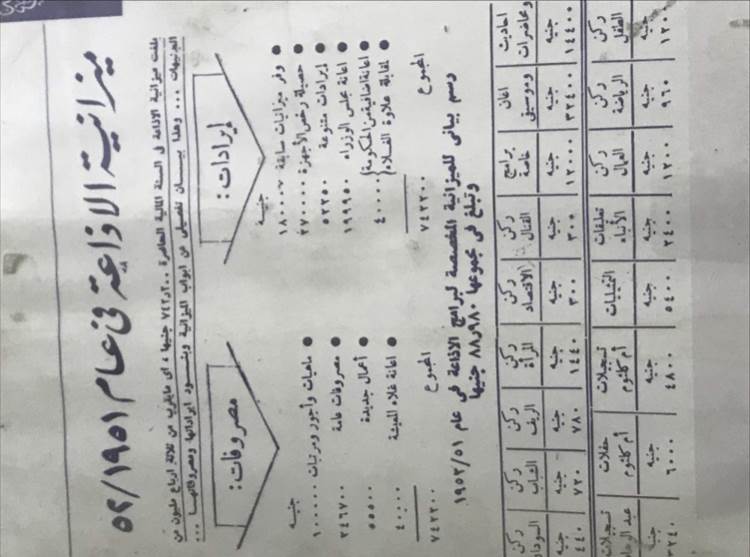 ميزانية الاذاعة في عام ٥٢/١٩٥١
بلغت ميزانية الاذاعة في السنة المالية الحاضرة ٧٤٢٫٢٠٠ جنيها ، اى مايقرب من ثلاثة ارباع مليون من
الجنيهات ... وهذا بيان تفصيلى عن ابواب الميزانية وبنود ايراداتها ومصروفاتها ...
إيرادات:
جنيه
١٨٠٠٠٠ وفر ميزانيات سابقة
٢٧٠٠٠٠ حصيلة رخص الأجهزة
٥٢٢٥٠ إيرادات متنوعة
١٩٩٩٥٠ اعانة مجلس الوزراء
٤٠٠٠٠ اعانة اضافية من الحكومة (
لمقابلة علاوة الغلاء )
٧٤٢٢٠٠ المجموع
مصروفات:
جنيه
١٠٠٠٠٠ ماهيات وأجور ومرتبات
٣٤٦٧٠٠ مصروفات عامة
٥٥٥٠٠ أعمال جديدة
٤٠٠٠٠ اعانة غلاء المعيشة
٧٤٢٢٠٠ المجموع
رسم بيانى للميزانية المخصصة لبرامج الاذاعة فى عام ١٩٥٢/٥١
وتبلغ فى مجموعها ٨٨٫٩٨٠ جنيها
احاديث ومحاضرات | اغان وموسيقى | برامج خاصة | ركن القنال | ركن الاقتصاد | ركن المرأة | ركن الريف | ركن الشباب | ركن السودان
جنيه ١٤٤٠٠ | جنيه ٣٢٤٠٠ | جنيه ١٢٠٠٠ | جنيه ٣٠٠ | جنيه ٣٠٠ | جنيه ١٤٤٠ | جنيه ٧٨٠ | جنيه ٧٢٠ | جنيه ٤٤٠
ركن الطفل | ركن الرياضة | ركن العمال | تعليقات الأنباء | التمثيليات | تسجيلات أم كلثوم | حفلات أم كلثوم | تسجيلات عبد
جنيه ١٢٠٠ | جنيه ٩٦٠ | جنيه ١٢٠٠ | جنيه ٢٤٠٠ | جنيه ٥٤٠٠ | جنيه ٤٨٠٠ | جنيه ٦٠٠٠ | جنيه ٢٤٠